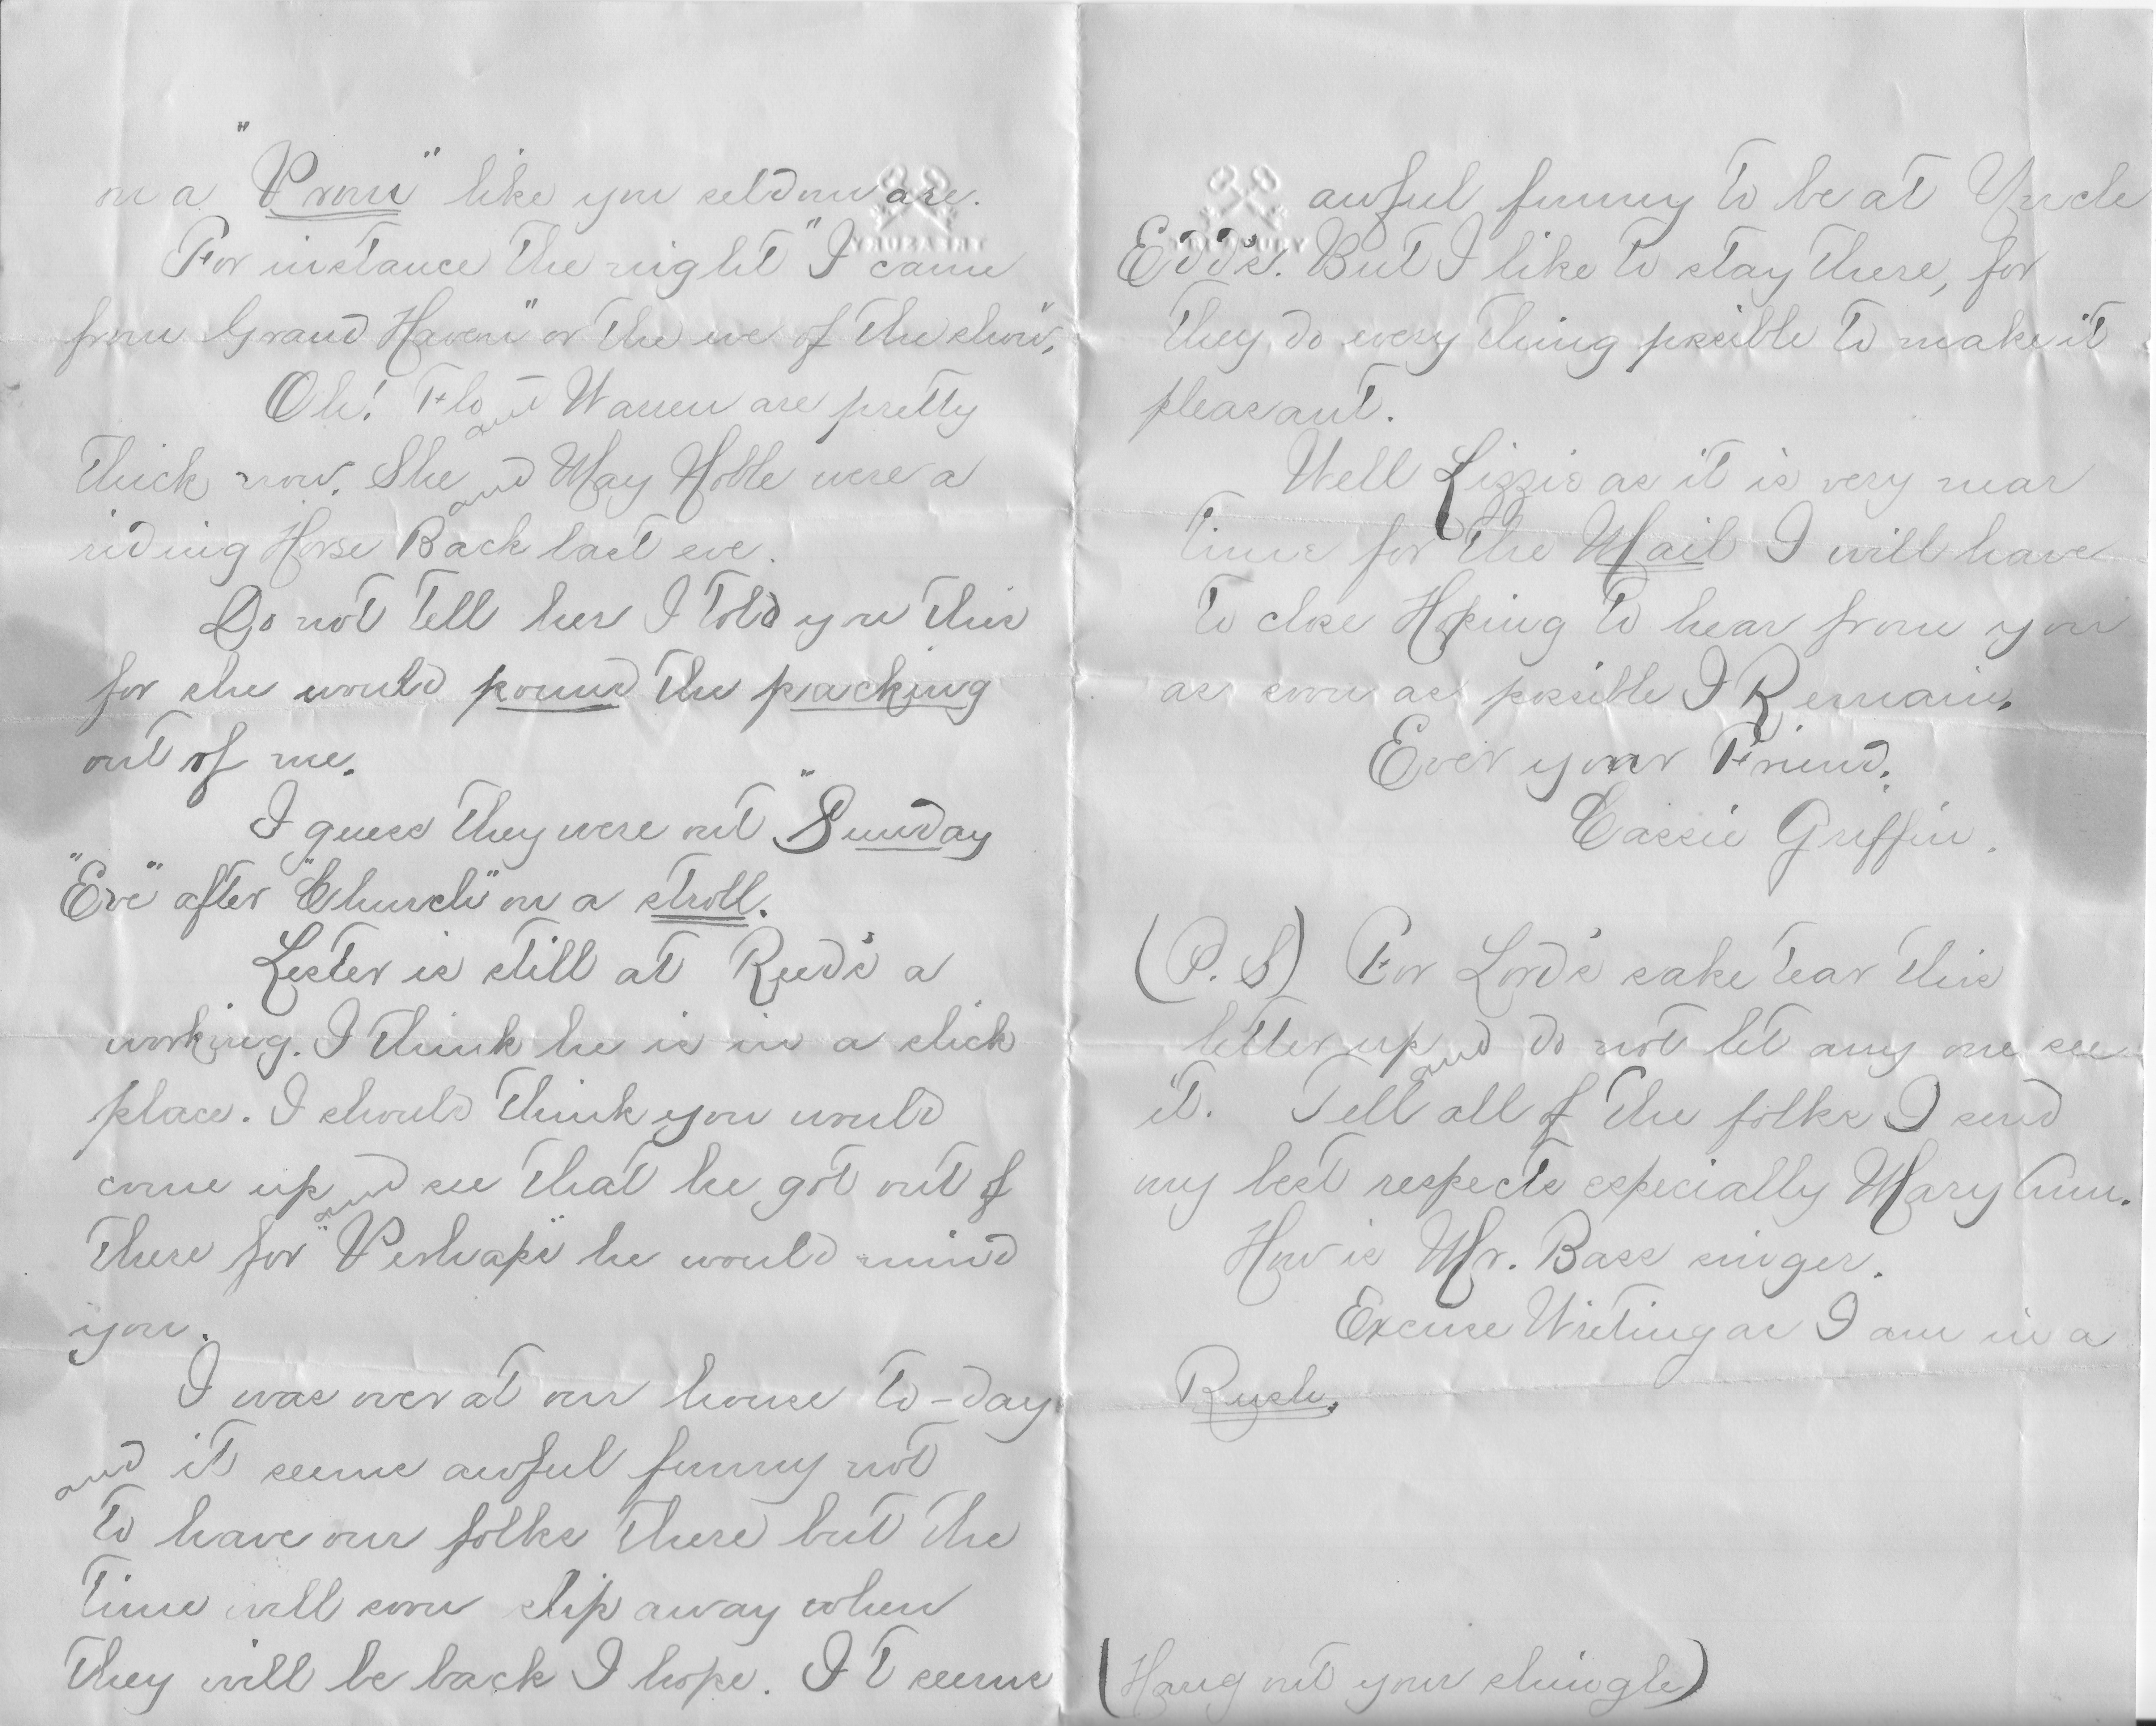 on a "Prom" like you seldom are.
For instance the night "I came
from Grand Haven" or the eve of the show".
Oh! Flo and Warren are pretty
thick now. She and May Noble were a
riding Horse Back last eve.
Do not tell her I told you this
for she would pound the packing
out of me.
I guess they were out "Sunday
"Eve" after "Church" on a stroll.
Lester is still at Reed's a
working. I think he is in a slick
place. I should think you would
come up and see that he got out of
there for "Perhaps" he would mind
you.
I was over at our house to-day
and it seems awful funny not
to have our folks there but the
time will soon slip away when
they will be back I hope. It seems
awful funny to be at Uncle
Edd's. But I like to stay there, for
they do every thing possible to make it
pleasant.
Well Lizzie as it is very near
time for the Mail I will have
to close Hoping to hear from you
as soon as possible I Remain.
Ever your Friend.
Cassie Griffin.
(P.S) For Lord's sake tear this
letter up and do not let any one see
it. Tell all of the folks I send
my best respects especially Mary Ann.
How is Mr. Bass singer.
Excuse Writing as I am in a
Rush.
(Hang out your shingle)